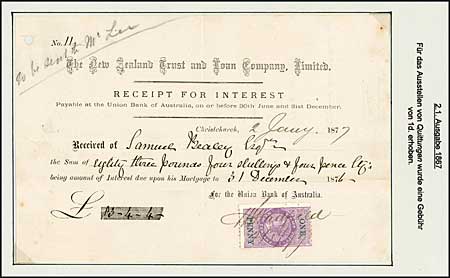 No. 11
To be sent to Mr Lee
The New Zealand Trust and Loan Company, Limited.
RECEIPT FOR INTEREST
Payable at the Union Bank of Australia, on or before 30th June and 31st December.
Christchurch, 2 Jany. 1877
Received of Samuel Bealey Esqre
the Sum of eighty three pounds four shillings & four pence
being amount of Interest due upon his Mortgage to 31 December 1876
For the Union Bank of Australia.
£ 83-4-4
ONE PENNY
2.1. Ausgabe 1867
Für das Ausstellen von Quittungen wurde eine Gebühr
von 1d. erhoben.